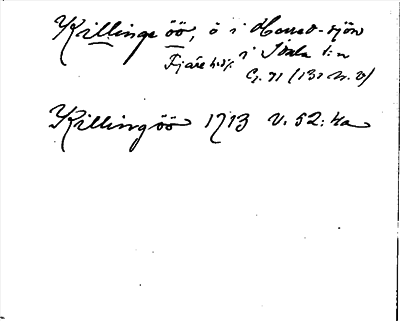 Killinge öö, ö i Horred-sjön
Fjäre hd; i Idala sn
G. 71 (131 N. V)
Killingöö 1713 V. 52: 4a